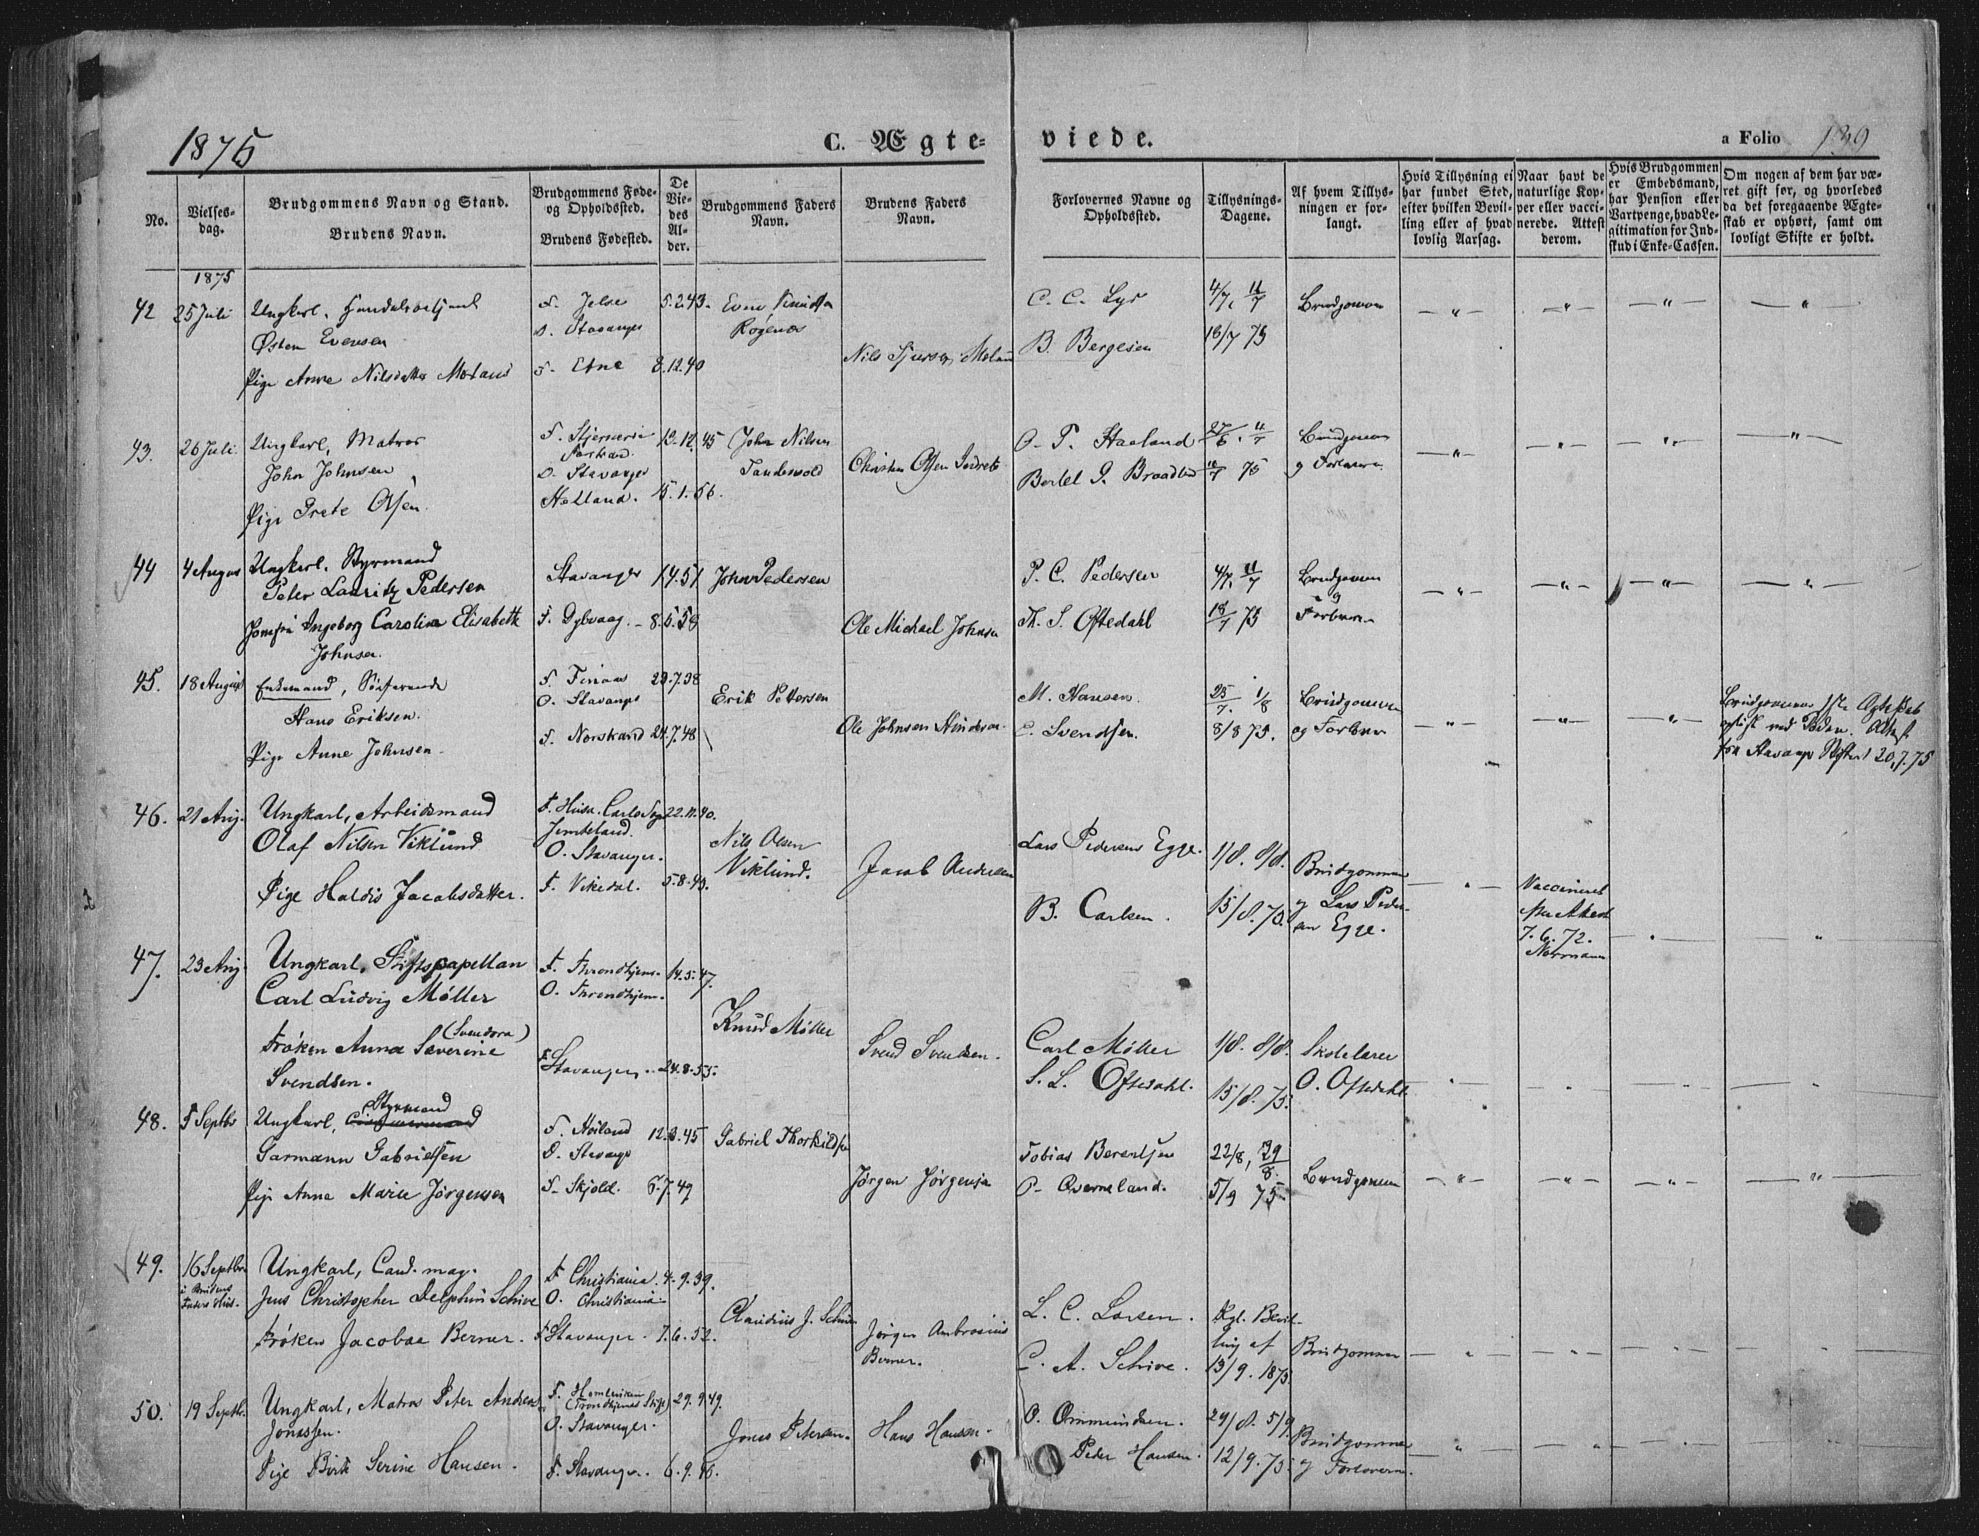 1875
C. Ægte-
viede.
a Folio 139
No.
Vielses-
dag.
Brudgommens Navn og Stand.
Brudens Navn.
Brudgommens Føde-
og Opholdsted.
Brudens Fødested.
De
Vie-
des
Al-
der.
Brudgommens Faders
Navn.
Brudens Faders
Navn.
Forlovernes Navne og
Opholdsted.
Tillysnings-
Dagene.
Af hvem Tillys-
ningen er for-
langt.
Hvis Tillysning ei
har fundet Sted,
efter hvilken Bevil-
ling eller af hvad
lovlig Aarsag.
Naar havt de
naturlige Kop-
per eller vacci-
nerede. Attest
derom.
Hvis Brudgommen
er Embedsmand,
har Pension eller
Vartpenge, hvad Le-
gitimation for Ind-
skud i Enke-Cassen.
Om nogen af dem har væ-
ret gift før, og hvorledes
da det foregaaende Ægte-
skab er ophørt, samt om
lovligt Skifte er holdt.
1875
42 25 Juli Ungkarl,
Østen Evensen
Pige Anne Nilsdatter Moland
F. Jelse 5.2.43.
O. Stavanger
F. Etne 8.12.40
Even Knudsen
Nils Moland
C. C. Lys
B. Bergesen
4/7. 11/7
18/7 75
Brudgommen
43. 26 Juli. Ungkarl, Matros
John Johnsen
Pige Grete Olsen.
F. Stjernerø
O. Stavanger
Hetland. 15.1.56.
John Nilsen
Christen Olsen
O. T. Haaland
27/6. 4/7
11/7 75
Brudgommen
og Forlovere
44 4 August Ungkarl. Styrmand
Peter Lauritz Pedersen
Jomfru Ingeborg Caroline Elisabeth
Johnsen.
Stavanger 1.4.51
F. Dybvaag. 8.5.58
John Pedersen
Ole Michael Johnsen
P. C. Pedersen
Th. S. Oftedahl
4/7. 11/7
18/7 75
Brudgommen
og
Forlovere
45. 18 August Enkemand, Søfarende
Hans Eriksen.
Pige Anne Johnsen.
F. Finnaas 23.7.38
O. Stavanger
F. Norstrand 24.7.48
Erik Pettersen
Ole Johnsen
M. Hansen.
Svendsen.
25/7. 1/8
8/8 75.
Brudgommen
og Forlover
Brudgommens 1ste Ægteskab
opløst ved Døden. Attest
fra Stavanger Skifteret 20.7.75
46. 21 Aug. Ungkarl, Arbeidsmand
Olaf Nilsen Viklund
Pige Haldis Jacobsdatter.
Jemteland.
O. Stavanger.
F. Vikedal. 5.8.43.
22.11.40.
Nils Olsen
Viklund.
Jacob Andersen
Lars Pedersen Egge.
B. Carlsen.
1/8. 8/8.
15/8. 75.
Brudgommen
og Lars Peder-
sen Egge.
Vaccineret
Attest
7.6.72.
Normann
47. 23 Aug. Ungkarl, Stiftscapellan
Carl Ludvig Møller
Frøken Anna Severine (Svendora)
Svendsen.
F. Throndhjem. 14.5.47.
O. Throndhjem.
F. Stavanger. 24.8.55.
Knud Møller
Svend Svendsen.
Carl Møller
S. L. Oftedahl.
1/8. 8/8.
15/8. 75.
Skolelærer
O. Oftedahl.
48. 5 Septbr Ungkarl, Styrmand
Garmann Gabrielsen
Pige Anna Marie Jørgensen
F. Høiland 12.3.45
O. Stavanger
F. Skjold. 6.7.49
Gabriel Thorkildsen
Jørgen Jørgensen
Tobias Berentsen
O. Qverneland.
22/8, 29/8.
5/9 75
Brudgommen
49. 16 Septbr.
i Brudens
Faders Hus.
Ungkarl, Cand. mag.
Jens Christopher Delphin Schive
Frøken Jacobaa Berner.
F. Christiania. 4.9.39.
O. Christiania.
F. Stavanger. 7.6.52.
Claudius J. Schive
Jørgen Ambrosius
Berner.
L. C. Larsen.
C. A. Schive.
Kgl. Bevil-
ling af
13/9. 1875
Brudgommen
50. 19 Septbr. Ungkarl, Matros Peter Andreas
Jonassen.
Pige Berte Serine Hansen.
(Trondhjems Stift) 29.9.49.
O. Stavanger.
F. Stavanger. 6.9.46.
Jonas Petersen.
Hans Hansen.
O. Ommundsen.
Peder Hansen.
29/8. 5/9
12/9. 75.
Brudgommen
og Forloverne.